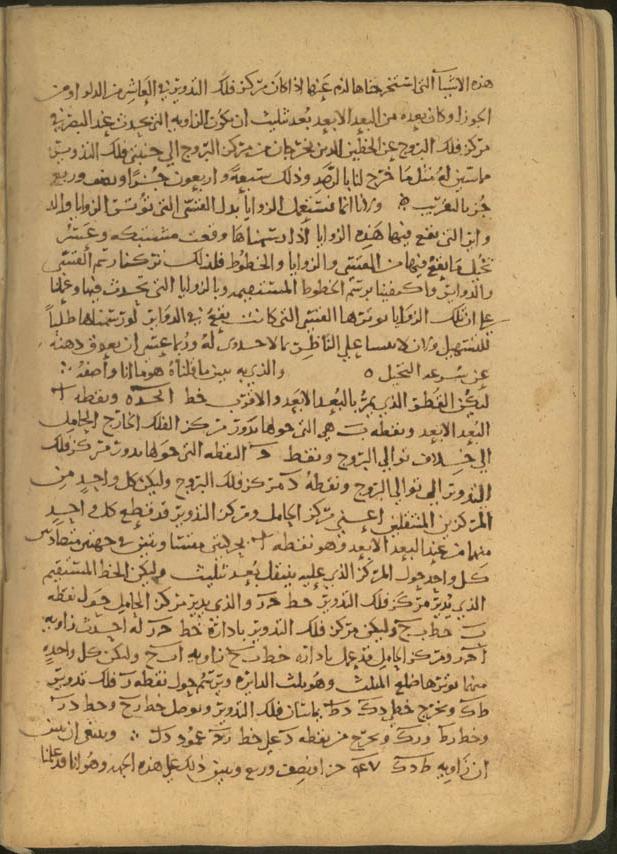 هذه الاشيا التى استخرجناها لزم عنها اذا كان مركز فلك التدوير فى العاشر من الدلو او من
الجوزا وكان بعده من البعد الابعد بعد تثليث ان يكون الزاويه التى تحدث عند البصر فى
مركز فلك البروج عن الخطين الذين يخرجان من مركز البروج الى جنبتى فلك التدوير
ماسين له مثل ما خرج لنا بالرصد وذلك سبعة واربعون جزوا ونصف وربع
جز بالتقريب وانا انما نستعمل الزوايا بدل القسى التى توتر الزوايا والد
واير التى تقع فيها هذه الزوايا اذا رسمناها وقعت مشتبكه وعسر
تخيل ما يقع فيها من القسى والزوايا والخطوط فلذلك تركنا رسم القسى
والدواير واكتفينا برسم الخطوط المستقيمه وبالزوايا التى تحدث فيها وعلمنا
على ان تلك الزوايا توترها القسى التى كانت تقع فى الدواير لو رسمناها طلبا
للتسهيل على الناظر بما لا جدوى له وربما عسر ان يعوق ذهنه
عن سرعه التخيل ه والذى به يبين ما قلناه هو ما انا واصفه
ليكن القطر الذى يمر بالبعد الابعد والاقرب خط ا ونقطه ا
البعد الابعد ونقطه ب هى التى حولها يدور مركز الفلك الخارج الحامل
الى خلاف توالى البروج ونقطه النقطه التى حولها يدور مركز فلك
التدوير الى توالى البروج ونقطة د مركز فلك البروج وليكن كل واحد من
المركزين المنتقلين اعنى مركز الحامل ومركز التدوير قد قطع كل واحد
منهما من عند البعد الابعد وهو نقطه ا فى جهتين متضادتين
كل واحد حول المركز الذى عليه ينتقل بعد تثليث وليكن الخط المستقيم
الذى يدير مركز فلك التدوير خط والذى يدير مركز الحامل حول نقطه
ب خط ب ح وليكن مركز فلك التدوير بادارة خط له احدث زاويه
ومركز الحامل قد عمل بادارة خط ب ح زاويه ا ب ح وليكن كل واحده
منهما توترها ضلع المثلث وهو ثلث الدايره ونرسم حول نقطه فلك تدوير
ط ك ونخرج خطى د ك د ط يماسان فلك التدوير ونوصل خط وخط
وخط ونخرج من نقطه د على خط عمود د ل وينبغى ان نبين
ان زاويه ط د ك جزا ونصف وربع ونبين ذلك على هذه الجهه وهو انا قد علمنا